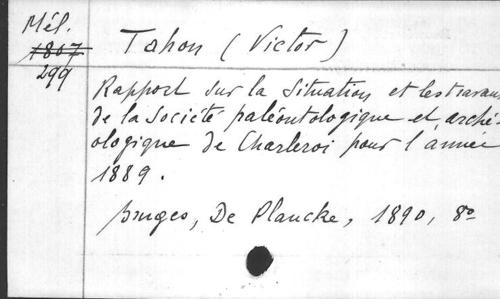 Mél.
1807
299
Tahon (Victor)
Rapport sur la situation et les travaux
de la Société paléontologique et arché-
ologique de Charleroi pour l'année
1889.
Bruges, De Plancke, 1890, 8º